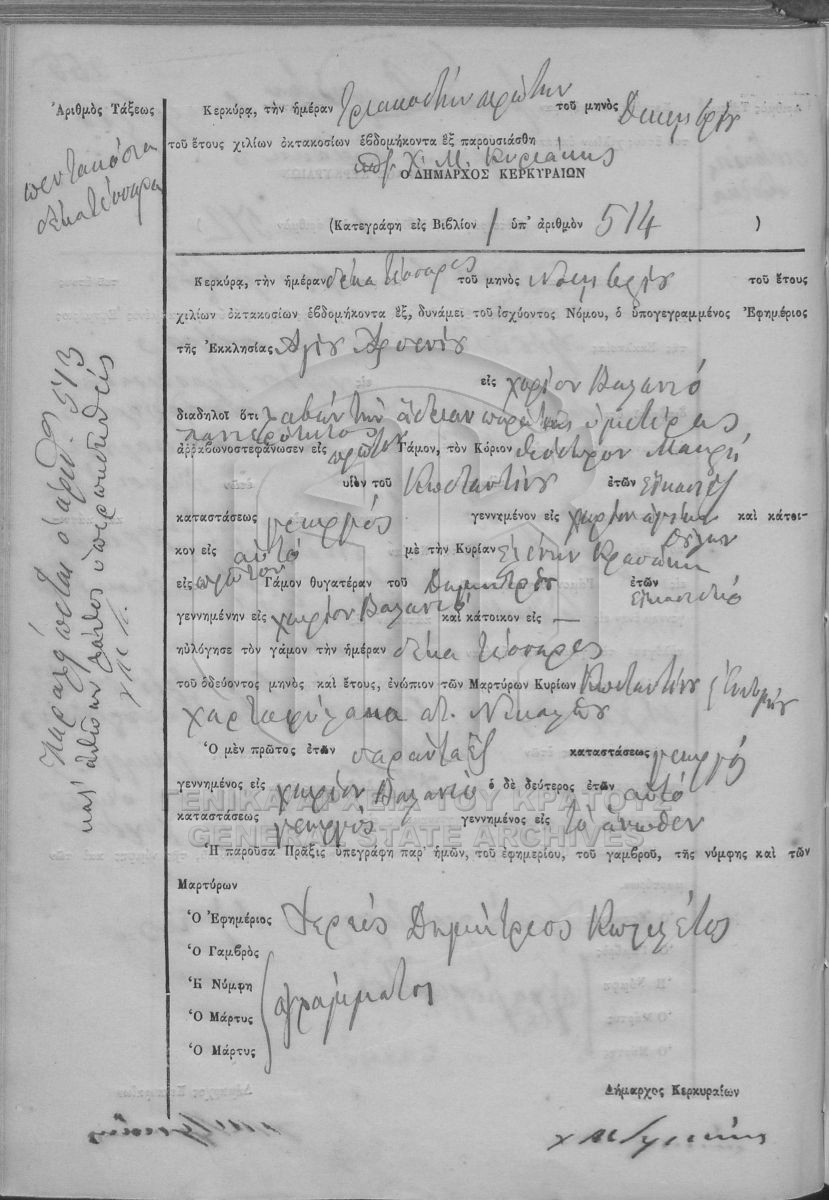 Ἀριθμὸς Τάξεως
πεντακόσια
δεκατέσσαρα
Κερκύρᾳ, τὴν ἡμέραν τριακοστήν πρώτην τοῦ μηνὸς Δεκεμβρίου
τοῦ ἔτους χιλίων ὀκτακοσίων ἑβδομήκοντα ἓξ παρουσιάσθη
Χ. Μ. Κυριάκης
Ὁ ΔΗΜΑΡΧΟΣ ΚΕΡΚΥΡΑΙΩΝ
(Κατεγράφη εἰς Βιβλίον 1 ὑπ' ἀριθμὸν 514 )
Κερκύρᾳ, τὴν ἡμέραν δέκα τέσσαρες τοῦ μηνὸς Νοεμβρίου τοῦ ἔτους
χιλίων ὀκτακοσίων ἑβδομήκοντα ἓξ, δυνάμει τοῦ ἰσχύοντος Νόμου, ὁ ὑπογεγραμμένος Ἐφημέριος
τῆς Ἐκκλησίας Αγίου Αρσενίου
εἰς χωρίον Βαλανιό
διαδηλοῖ ὅτι λαβών την άδειαν παρά της υμετέρας
πανιερότητος
ἀρραβωνοστεφάνωσεν εἰς πρώτον Γάμον, τὸν Κύριον Μακρή
υἱὸν τοῦ Κωσταντίνου ἐτῶν είκοσι έξ
καταστάσεως γεωργός γεννημένον εἰς χωρίον αγίων καὶ κάτοι-
Δούλων
κον εἰς αυτό μὲ τὴν Κυρίαν Ελένην
εἰς πρώτον Γάμον θυγατέραν τοῦ Δημητρίου ἐτῶν είκοσι δύο
γεννημένην εἰς χωρίον Βαλανιό καὶ κάτοικον εἰς —
ηὐλόγησε τὸν γάμον τὴν ἡμέραν δέκα τέσσαρες
τοῦ ὁδεύοντος μηνὸς καὶ ἔτους, ἐνώπιον τῶν Μαρτύρων Κυρίων Κωσταντίνου
Χαρτοφύλακα Νικολάου
Ὁ μὲν πρῶτος ἐτῶν σαράντα έξ καταστάσεως γεωργός
γεννημένος εἰς χωρίον Βαλανιό ὁ δὲ δεύτερος ἐτῶν αυτό
καταστάσεως γεωργός γεννημένος εἰς το άνωθεν
Ἡ παροῦσα Πρᾶξις ὑπεγράφη παρ' ἡμῶν, τοῦ ἐφημερίου, τοῦ γαμβροῦ, τῆς νύμφης καὶ τῶν
Μαρτύρων
Ὁ Ἐφημέριος Ιερεύς Δημήτριος
Ὁ Γαμβρὸς
Ἡ Νύμφη
αγράμματοι
Ὁ Μάρτυς
Ὁ Μάρτυς
Δήμαρχος Κερκυραίων
Χ Μ Κυριάκης
Παραλείπεται ο αριθ. 513
κατά λάθος
Χ Μ Κ.
ΓΕΝΙΚΑ ΑΡΧΕΙΑ ΤΟΥ ΚΡΑΤΟΥΣ
GENERAL STATE ARCHIVES